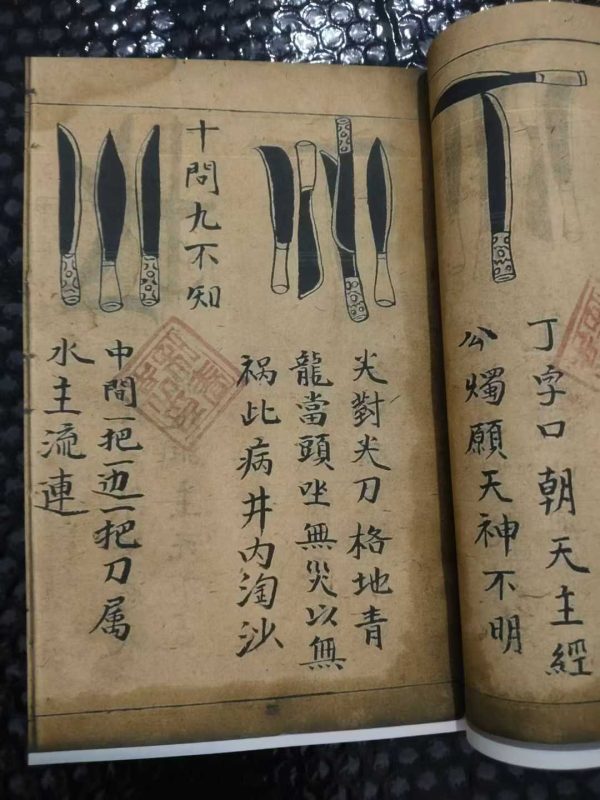 丁字口朝天主經
公燭願天神不明
尖對尖刀格地青
龍當頭坐無災以無
祸此病井内淘沙
十問九不知
中間一把边一把刀属
水主流連